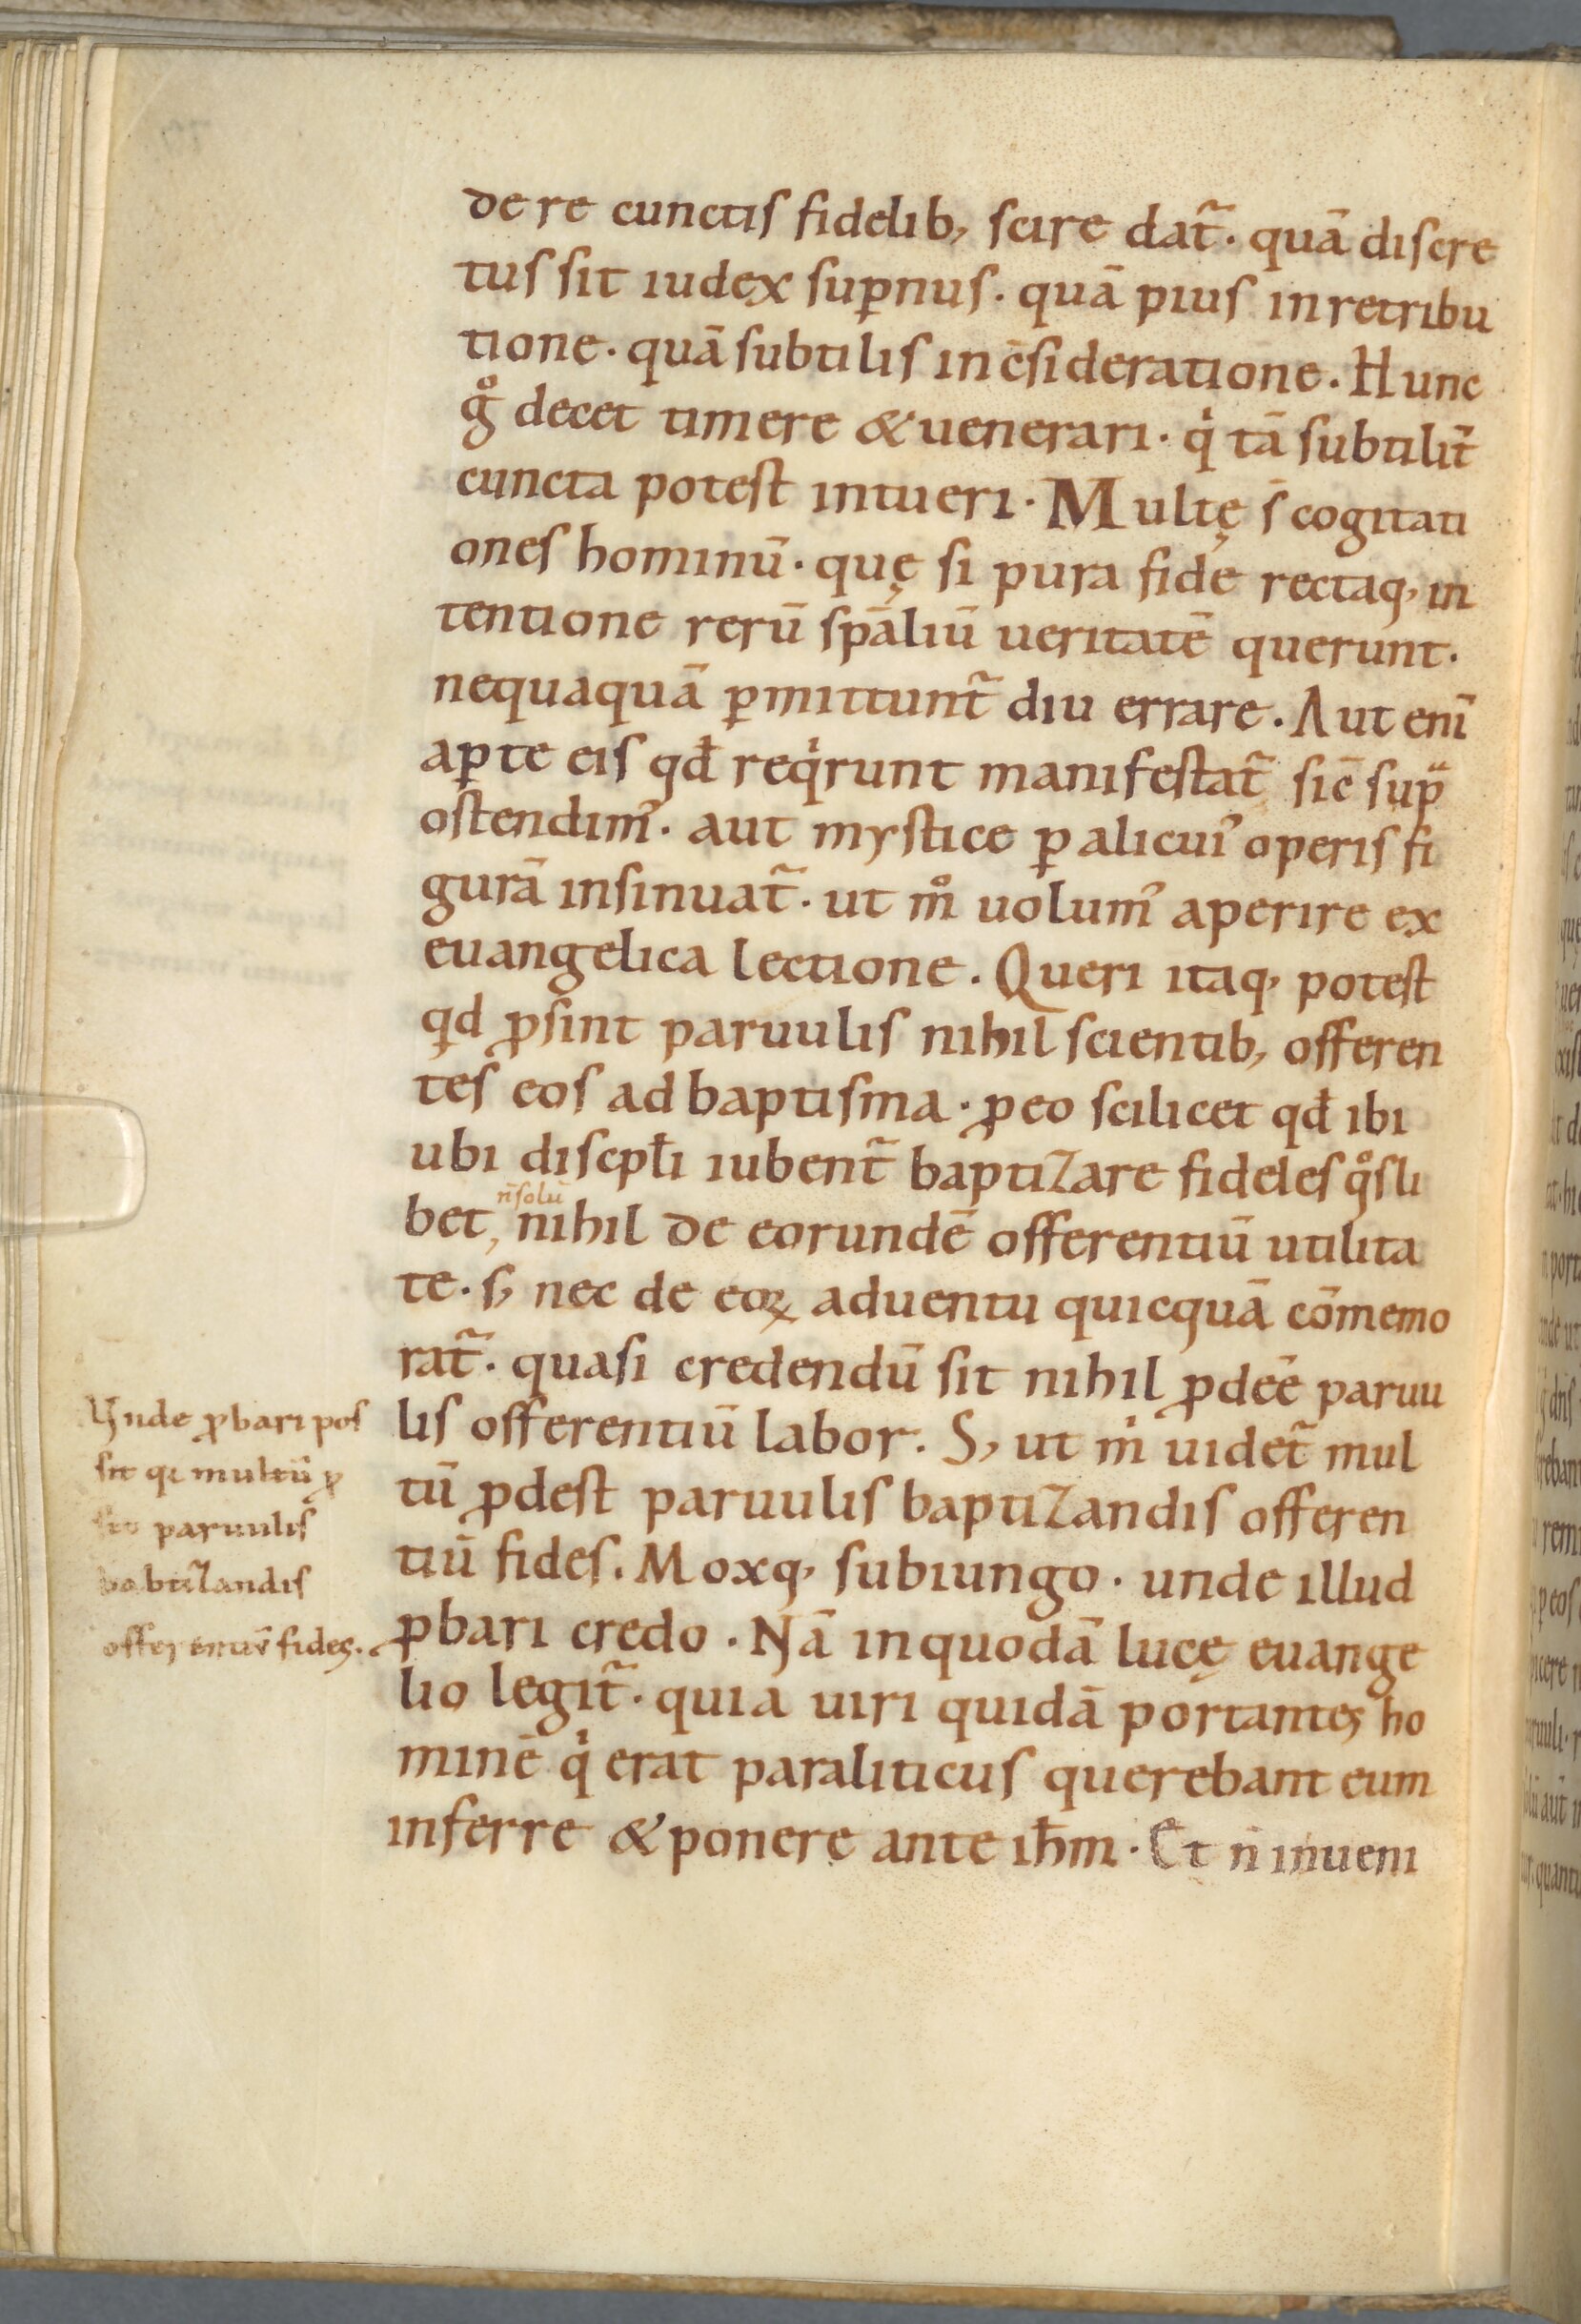 de re cunctis fidelib; scire dat̃. quā discre
tus sit iudex suꝑnus. quā pius in retribu
tione. quā subtilis in c̄sideratione. Hunc
gͦ decet timere & uenerari. qͥ tā subtilit̃
cuncta potest intueri. Multę s̄ cogitati
ones hominū. quę si pura fide rectaq; in
tentione rerū sp̄aliū ueritatē querunt.
nequaquā ꝑmittunt̃ diu errare. Aut enī
aꝑte eis qđ reqͥrunt manifestat̃ sic̄ supᷓ
ostendimꝰ. aut mystice ꝑ alicuiꝰ operis fi
gurā insinuat̃. ut mͦ uolumꝰ aperire ex
euangelica lectione. Queri itaq; potest
qd ꝓsint paruulis nihil scientib; offeren
tes eos ad baptisma. ꝓ eo scilicet qđ ibi
ubi discipłi iubent̃ baptizare fideles qͦsli
bet, n̄ solū nihil de eorundē offerentiū utilita
te. s; nec de eoꝝ aduentu quicquā cōmemo
rat̃. quasi credendū sit nihil ꝓdeē paruu
lis offerentiū labor. S; ut mͥ uidet̃ mul
tū ꝓdest paruulis baptizandis offeren
tiū fides. Moxq; subiungo. unde illud
ꝓbari credo. Nā in quodā lucę euange
lio legit̃. quia uiri quidā portantes ho
minē qͥ erat paraliticus querebant eum
inferre & ponere ante ih̄m. Et n̄ inueni
Vnde ꝓbari pos
sit qꝛ multū ꝓ
sit paruulis
babtizandis
offerentiū fides.